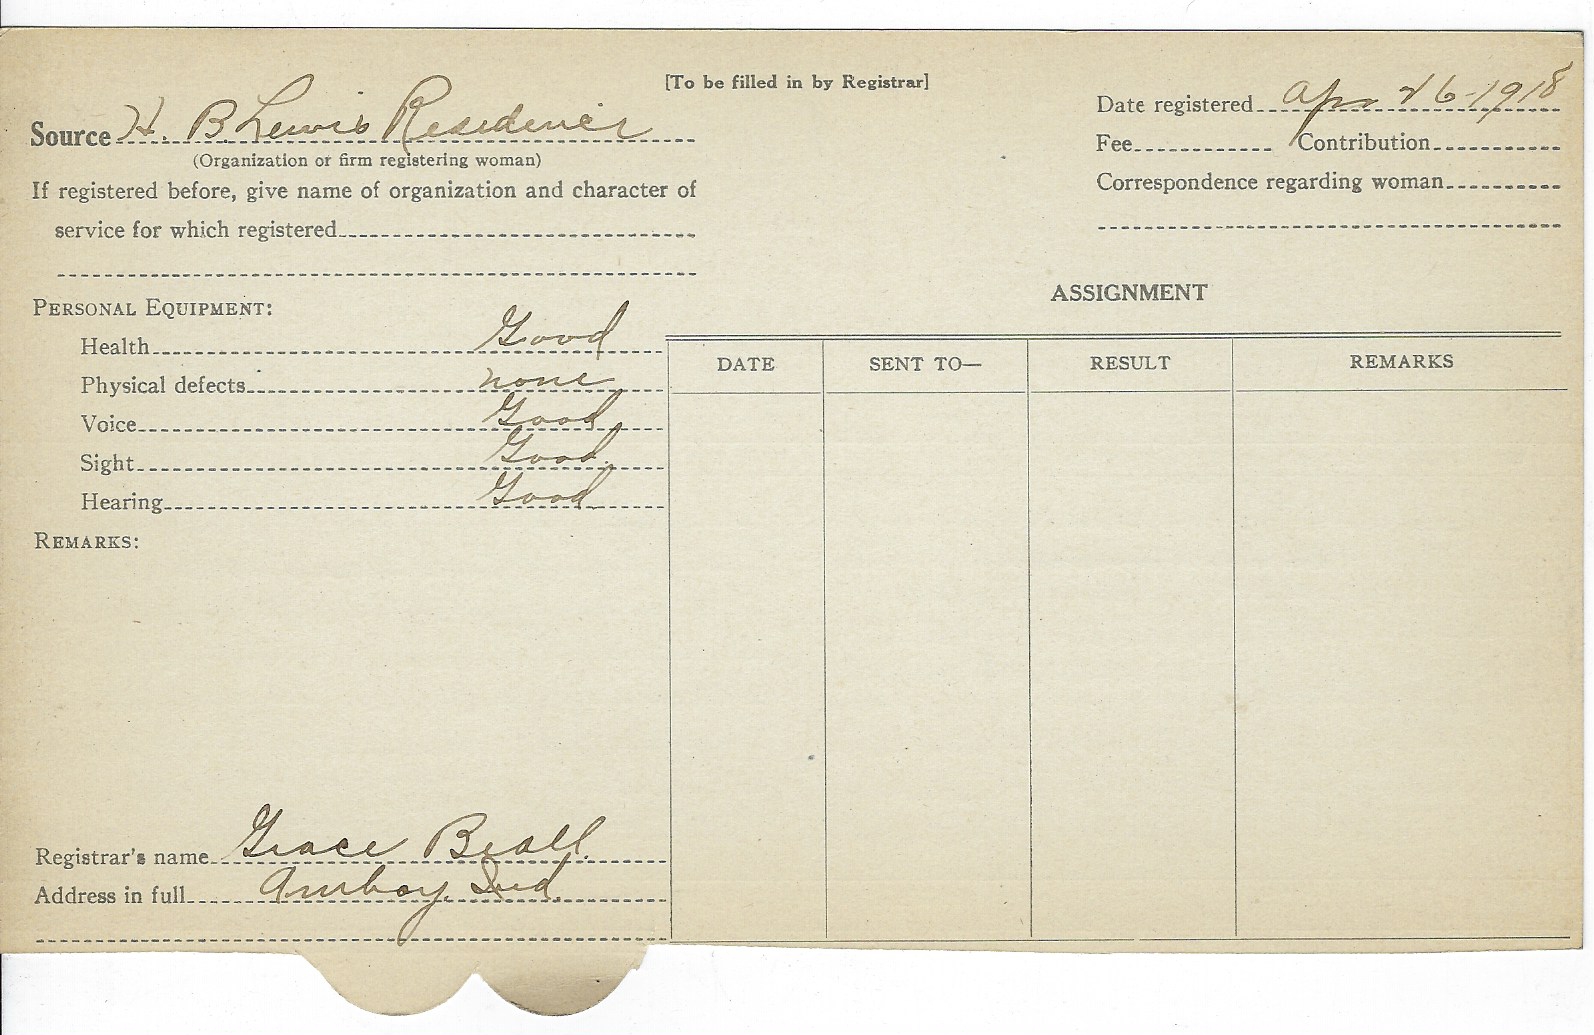 [To be filled in by Registrar]
Source H. B. Lewis Residence
(Organization or firm registering woman)
If registered before, give name of organization and character of
service for which registered
Date registered Apr 26-1918
Fee Contribution
Correspondence regarding woman
PERSONAL EQUIPMENT:
Health Good
Physical defects none
Voice Good
Sight Good
Hearing Good
REMARKS:
Registrar's name Grace Beall.
Address in full Amboy, Ind.
ASSIGNMENT
DATE SENT TO— RESULT REMARKS